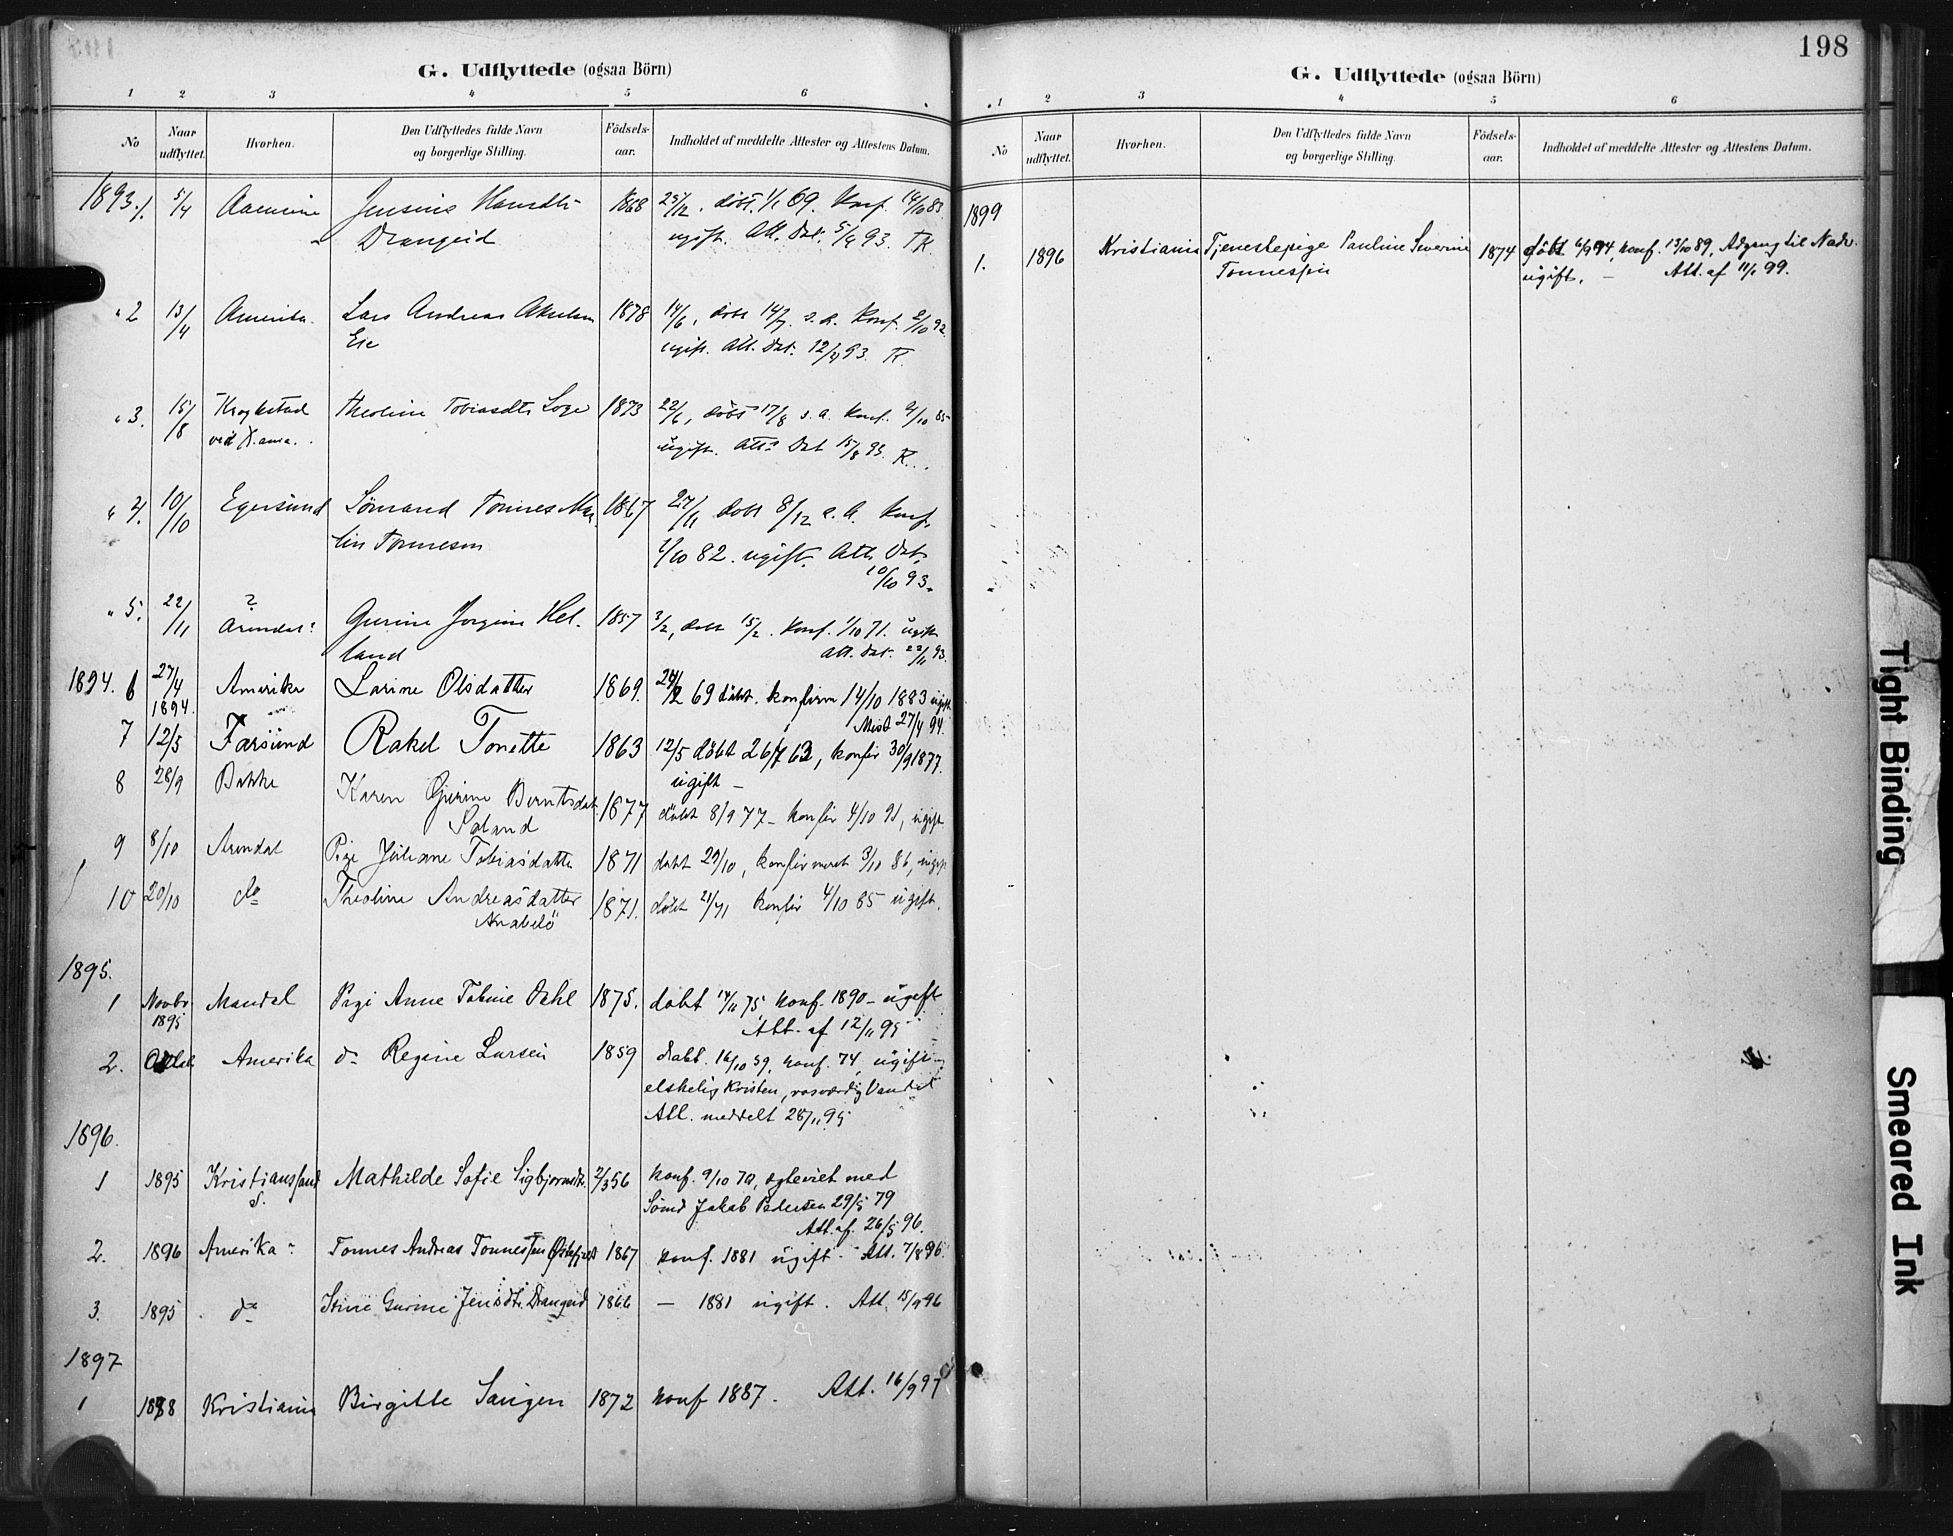 G. Udflyttede (ogsaa Börn)
1 2 3 4 5 6
No Naar udflyttet. Hvorhen. Den Udflyttedes fulde Navn og borgerlige Stilling. Födsels-aar. Indholdet af meddelte Attester og Attestens Datum.
1893. 1. 5/4 Jensine 1868 23/12. döbt. 1/1 69. Konf. 14/10 83.
Drangeid ugift. Att. Dat. 5/4 93. K.
" 2 13/4 Amerika. Lars Andreas 1878 14/6, döbt 14/7 s. a. Konf. 2/10 92.
Eie ugift. Att. Dat. 12/4 93. K.
" 3. 15/8 Krogstad Theoline Tobiasdtr 1873 22/6, döbt 17/8 s. a. Konf. 4/10 85
ved X.ania. ugift. Att. Dat 15/8 93. K.
" 4. 10/10 Egersund Sömand Tönnes Mar- 1867 27/11 döbt 8/12 s. a. Konf.
tin Tönnesen 1/10 82. ugift. Att. Dat.
10/10 93.
" 5. 22/11 ? Arendal? Gurine Jorgine Hel- 1857 3/2, döbt 15/2. Konf. 1/10 71. ugift
land Att. Dat. 22/11 93.
1894. 6 27/4 1894. Amerika Larine Olsdatter 1869. 69 döbt. konfirm 14/10 1883 ugift
27/4 94.
7 12/5 Farsund Rakel Tonette 1863 12/5 döbt 26/7 63, konfir 30/9 1877.
ugift –
8 28/9 Bakke Karen Gjurine Berntsdat. 1877 döbt 8/9 77 – konfir 4/10 91, ugift
9 8/10 Arendal Pige Juliane Tobiasdatter 1871 döbt 29/10, konfirmeret 3/10 86, ugift
10 20/10 do Theoline Andreasdatter 1871. döbt 21/71 konfir 4/10 85 ugift.
Anabelö
1895.
1 Novbr. 1895 Mandal Pige Anne Tobine Dahl 1875. döbt 14/11 75, konf. 1890 – ugift
Att. af 12/11 95
2. Amerika do Regine Larsen 1859 döbt. 16/10 59, konf. 74, ugift –
elskelig Kristen, rosværdig Vandel
Att. meddelt 28/11 95
1896.
1 1895 Kristianssand S. Mathilde Sofie Sigbjørnsdtr. 2/3 56 konf. 9/10 70, egteviet med
Sömd Jakob Pedersen 29/5 79
Att. af. 26/5 96.
2. 1896 Amerika Tonnes Andreas Tonnessen 1867 konf. 1881 ugift. Att. 7/8 96
3. 1895 do Stine Gurine Jensdtr. Drangeid 1866 – 1881 ugift. Att. 15/9 96
1897
1 1888 Kristiania Birgitte Saugen 1872 konf 1887. Att. 16/9 97
198
G. Udflyttede (ogsaa Börn)
1 2 3 4 5 6
No Naar udflyttet. Hvorhen. Den Udflyttedes fulde Navn og borgerlige Stilling. Födsels-aar. Indholdet af meddelte Attester og Attestens Datum.
1899
1. 1896 Kristiania Tjenestepige Pauline Severine 1874 döbt 6/9 74, konf. 13/10 89, Adgang til Nadv.
Tonnessen ugift. – Att. af 11/1 99.
Tight Binding
Smeared Ink